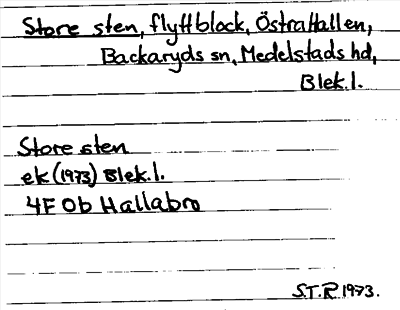 Store sten, flyttblock, Östra Hallen,
Backaryds sn, Medelstads hd,
Blek.l.
Store sten
ek (1973) Blek.l.
4F 0b Hallabro
S.T.R 1973.